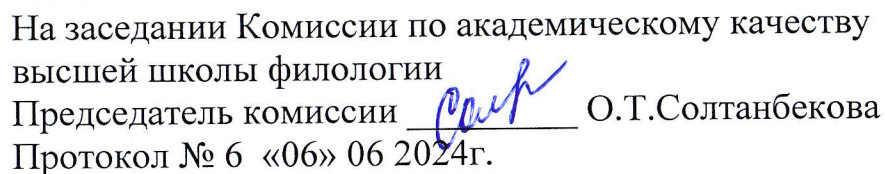 На заседании Комиссии по академическому качеству
высшей школы филологии
Председатель комиссии __________ О.Т.Солтанбекова
Протокол № 6 «06» 06 2024г.